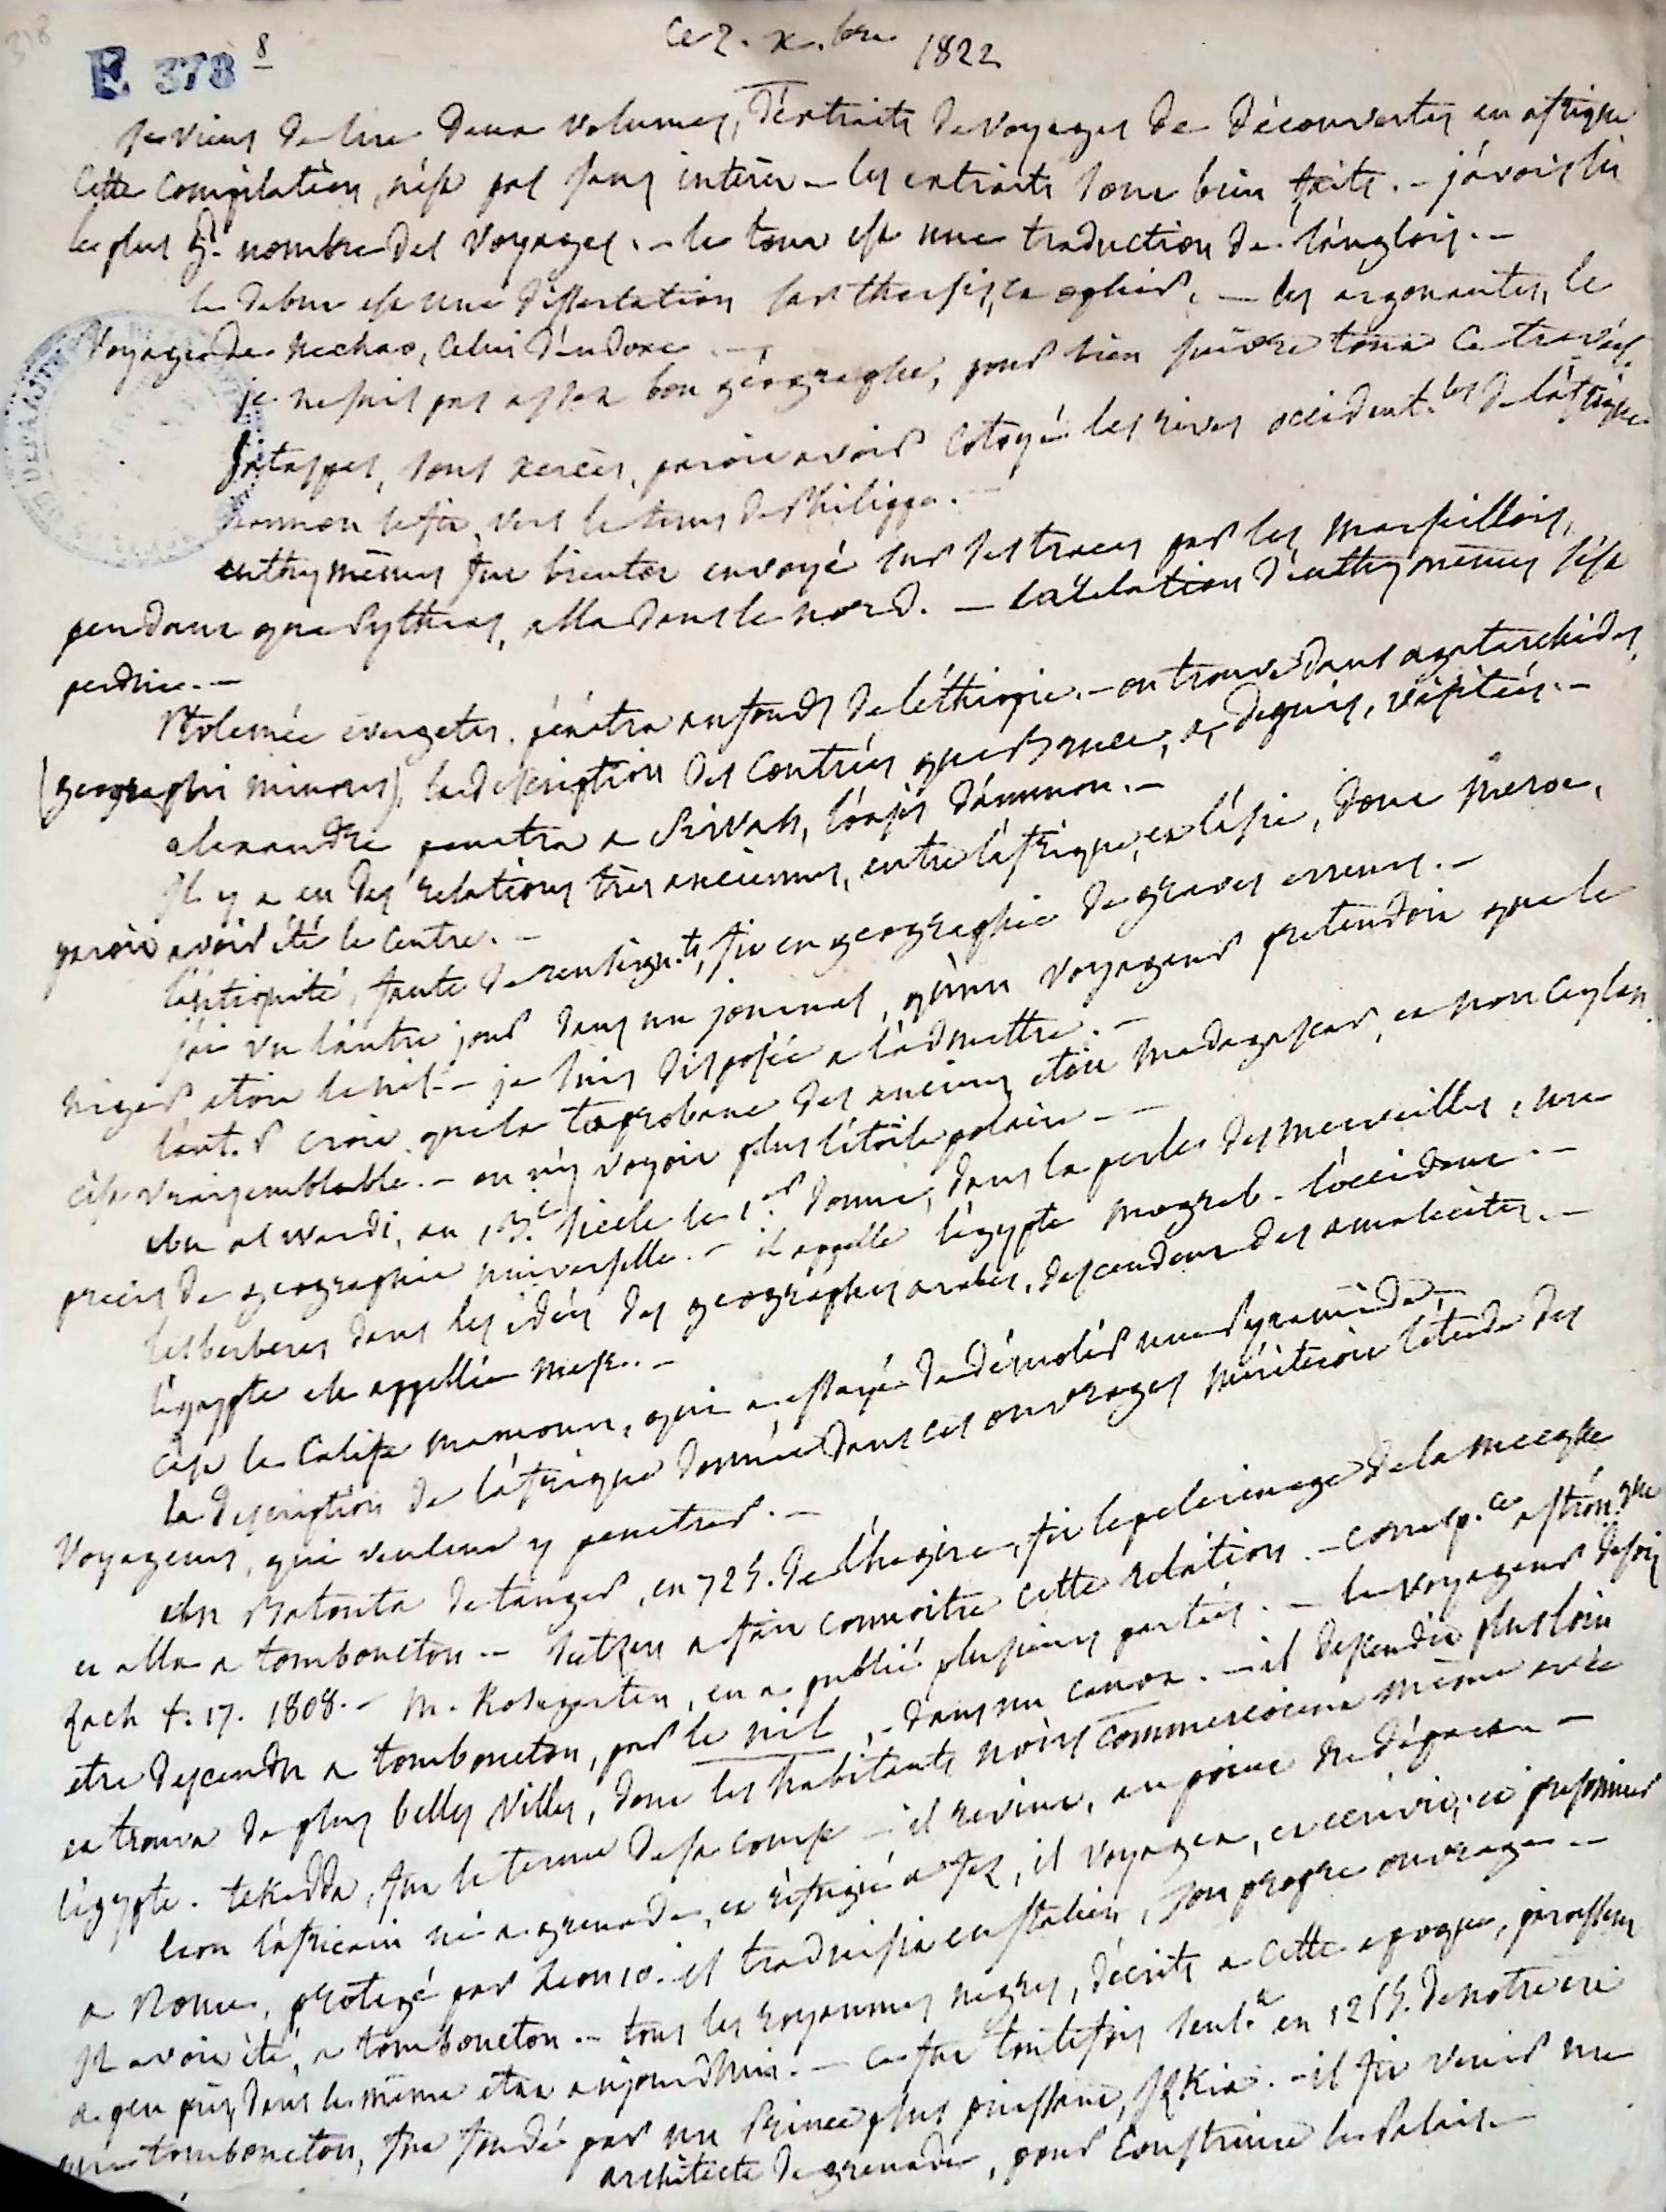 E 378 8
Ce 2. x.bre 1822
je viens de lire deux volumes, d'extraits de voyages de découvertes en afrique
Cette compilation, n'est pas sans intérêt - les extraits sont bien faits. - j'avois lu
le plus gd. nombre des voyages. - le tout est une traduction de l'anglois. -
le debut est une dissertation sur tharsis, et ophir, - les argonautes, le
voyage de nechao, celui d'eudoxe. -
je ne suis pas assez bon géographe, pour bien suivre tout ce travail
sataspes, sous xercès, paroit avoir cotoyé les rives occident.les de l'afrique
hannon le fit, vers le tems de Philippe. -
euthymènes fut bientot envoyé sur ses traces par les marseillois,
pendant que Pytheas, alla dans le nord. - la relation d'euthymènes s'est
perdue. -
Ptolemée evergetes. pénétra au fonds de l'éthiopie. - on trouve dans agatarchides,
(geographi minores), la description des contrées que Bruce, a, depuis, visitées. -
alexandre penetra a Sirwah, l'oasis d'ammon. -
Il y a eu des relations très anciennes, entre l'afrique, et l'asie, dont meroe,
paroit avoir été le centre. -
l'antiquité, faute de renseign.ts, fit en geographie de graves erreurs. -
j'ai vu l'autre jour dans un journal, qu'un voyageur pretendoit que le
niger, etoit le nil - je suis disposée a l'admettre. -
l'aut.r croit que la taprobane des anciens etoit madagascar, et non ceylan
c'est vraisemblable. - on n'y voyoit plus l'étoile polaire - -
ebn al wardi, au 13.e siecle le 1.er donne, dans la perle des merveilles, un
precis de geographie universelle. - il appelle l'egypte mogreb - l'occident. -
les berberes dans les idées des géographes arabes, descendent des amalecites. -
l'egypte est appellée mesr. -
c'est le Calife mamoun, qui a essayé de démolir une Pyramide -
la description de l'afrique donnée dans ces ouvrages mériteroit l'étude des
voyageurs, qui veulent y penetrer. -
ebn Batouta de tanger, en 725. de l'hegire, fit le pelerinage de la mecque
et alla a tombouctou. - Seetzen a fait connoitre cette relation. - corresp.ce astron.que
Zach t. 17. 1808. - M. Kosegarten, en a publié plusieurs parties. - le voyageur dit
etre descendu a tombouctou, par le nil, - dans un canot. - il descendit plus loin
et trouva de plus belles villes, dont les habitants noirs commerçoient même avec
l'egypte. tekadda, fut le terme de sa course - il revint, au point de départ -
leon l'africain né a grenade, et refugié a fez, il voyagea, et écrivit, et prisonnier
a Rome, protegé par Leon 10. il traduisit en italien, son propre ouvrage. -
Il avoit été, a tombouctou. - tous les royaumes negres, décrits a cette epoque, paroissent
a peu près, dans le même etat aujourd'hui. - ce fut toutefois seul.t en 1215. de notre ere
que tombouctou, fut fondé par un Prince plus puissant, Izkia. - il fit venir un
architecte de grenade, pour construire le Palais. -